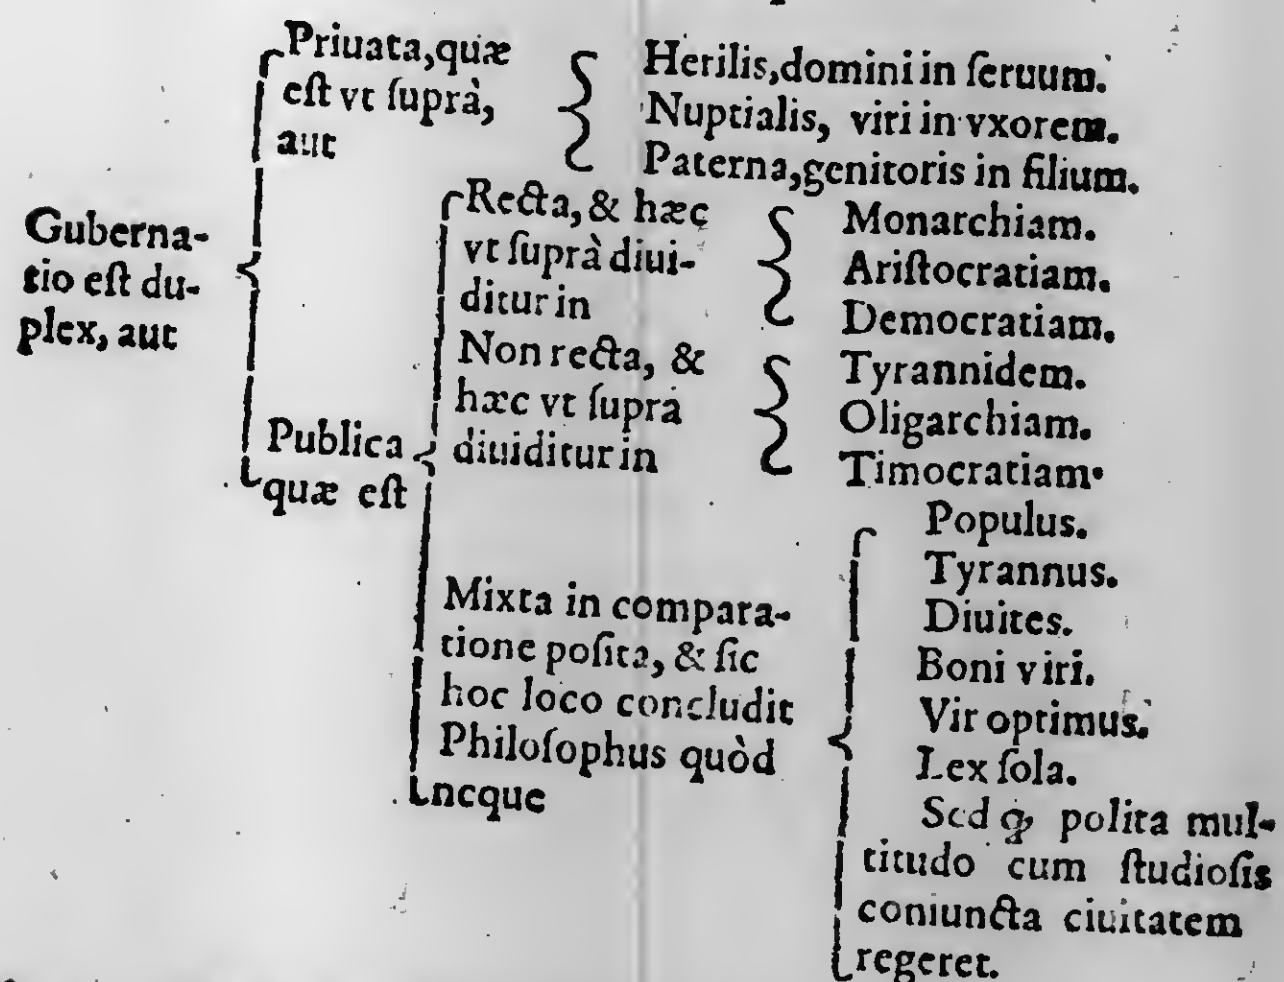 Guberna-
tio eſt du-
plex, aut
Priuata, quæ
eſt vt ſuprà,
aut
Herilis, domini in ſeruum.
Nuptialis, viri in vxorem.
Paterna, genitoris in filium.
Publica
quæ eſt
Recta, & hæc
vt ſuprà diui-
ditur in
Monarchiam.
Ariſtocratiam.
Democratiam.
Non recta, &
hæc vt ſupra
diuiditur in
Tyrannidem.
Oligarchiam.
Timocratiam.
Mixta in compara-
tione poſita, & ſic
hoc loco concludit
Philoſophus quòd
neque
Populus.
Tyrannus.
Diuites.
Boni viri.
Vir optimus.
Lex ſola.
Sed ꝙ polita mul-
titudo cum ſtudioſis
coniuncta ciuitatem
regeret.